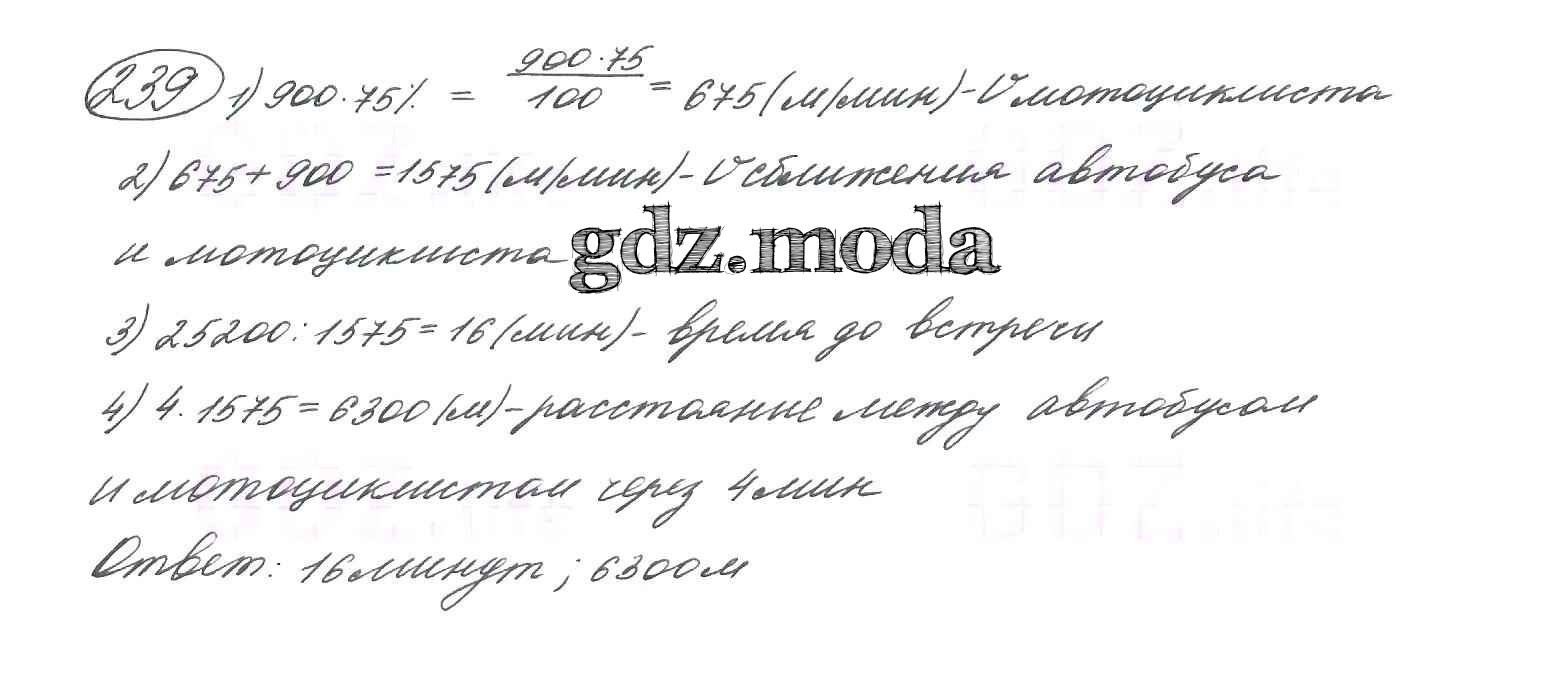 239 1) 900·75% = 900·75/100 = 675(м/мин)-V мотоциклиста
2) 675+900 =1575(м/мин)-V сближения автобуса
и мотоциклиста
gdz.moda
3) 25200:1575=16(мин)- время до встречи
4) 4·1575=6300(м)-расстояние между автобусом
и мотоциклистом через 4мин
Ответ: 16минут; 6300м